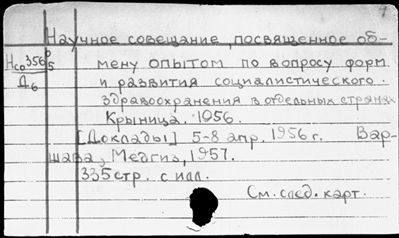 Научное совещание, посвященное об-
мену опытом по вопросу форм
и развития социалистического
здравоохранения в отдельных странах
Крыница. 1956.
[Доклады] 5-8 апр. 1956 г. Вар-
шава, Медгиз, 1957.
335 стр. с илл.
См. след. карт.